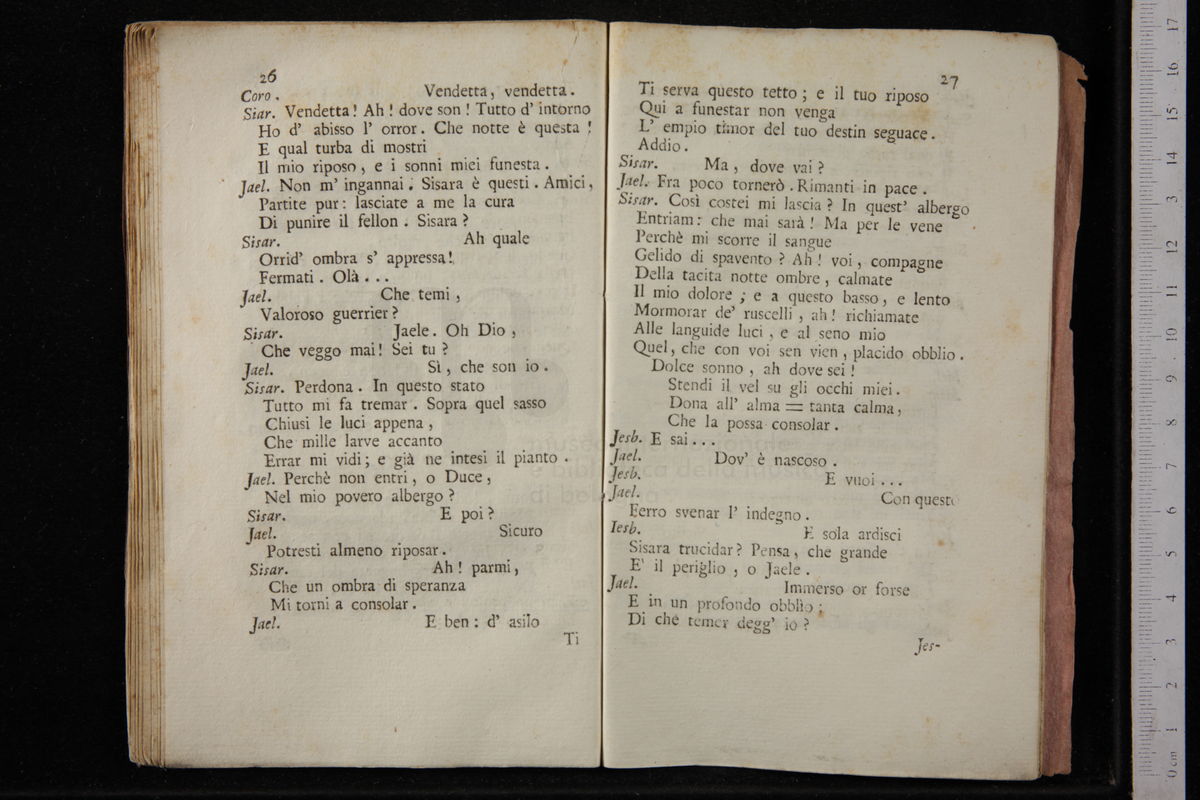 26
Coro. Vendetta, vendetta.
Siar. Vendetta! Ah! dove son! Tutto d' intorno
Ho d' abisso l' orror. Che notte è questa!
E qual turba di mostri
Il mio riposo, e i sonni miei funesta.
Jael. Non m' ingannai. Sisara è questi. Amici,
Partite pur: lasciate a me la cura
Di punire il fellon. Sisara?
Sisar. Ah quale
Orrid' ombra s' appressa!
Fermati. Olà...
Jael. Che temi,
Valoroso guerrier?
Sisar. Jaele. Oh Dio,
Che veggo mai! Sei tu?
Jael. Sì, che son io.
Sisar. Perdona. In questo stato
Tutto mi fa tremar. Sopra quel sasso
Chiusi le luci appena,
Che mille larve accanto
Errar mi vidi; e già ne intesi il pianto.
Jael. Perchè non entri, o Duce,
Nel mio povero albergo?
Sisar. E poi?
Jael. Sicuro
Potresti almeno riposar.
Sisar. Ah! parmi,
Che un ombra di speranza
Mi torni a consolar.
Jael. E ben: d' asilo
Ti
27
Ti serva questo tetto; e il tuo riposo
Qui a funestar non venga
L' empio timor del tuo destin seguace.
Addio.
Sisar. Ma, dove vai?
Jael. Fra poco tornerò. Rimanti in pace.
Sisar. Così costei mi lascia? In quest' albergo
Entriam: che mai sarà! Ma per le vene
Perchè mi scorre il sangue
Gelido di spavento? Ah! voi, compagne
Della tacita notte ombre, calmate
Il mio dolore; e a questo basso, e lento
Mormorar de' ruscelli, ah! richiamate
Alle languide luci, e al seno mio
Quel, che con voi sen vien, placido obblio.
Dolce sonno, ah dove sei!
Stendi il vel su gli occhi miei.
Dona all' alma = tanta calma,
Che la possa consolar.
Jesb. E sai...
Jael. Dov' è nascoso.
Jesb. E vuoi...
Jael. Con questo
Ferro svenar l' indegno.
Iesb. E sola ardisci
Sisara trucidar? Pensa, che grande
E' il periglio, o Jaele.
Jael. Immerso or forse
E in un profondo obblio;
Di che temer degg' io?
Jes-
museo internazionale
e biblioteca della musica
di bologna
0 cm 1 2 3 4 5 6 7 8 9 10 11 12 13 14 15 16 17